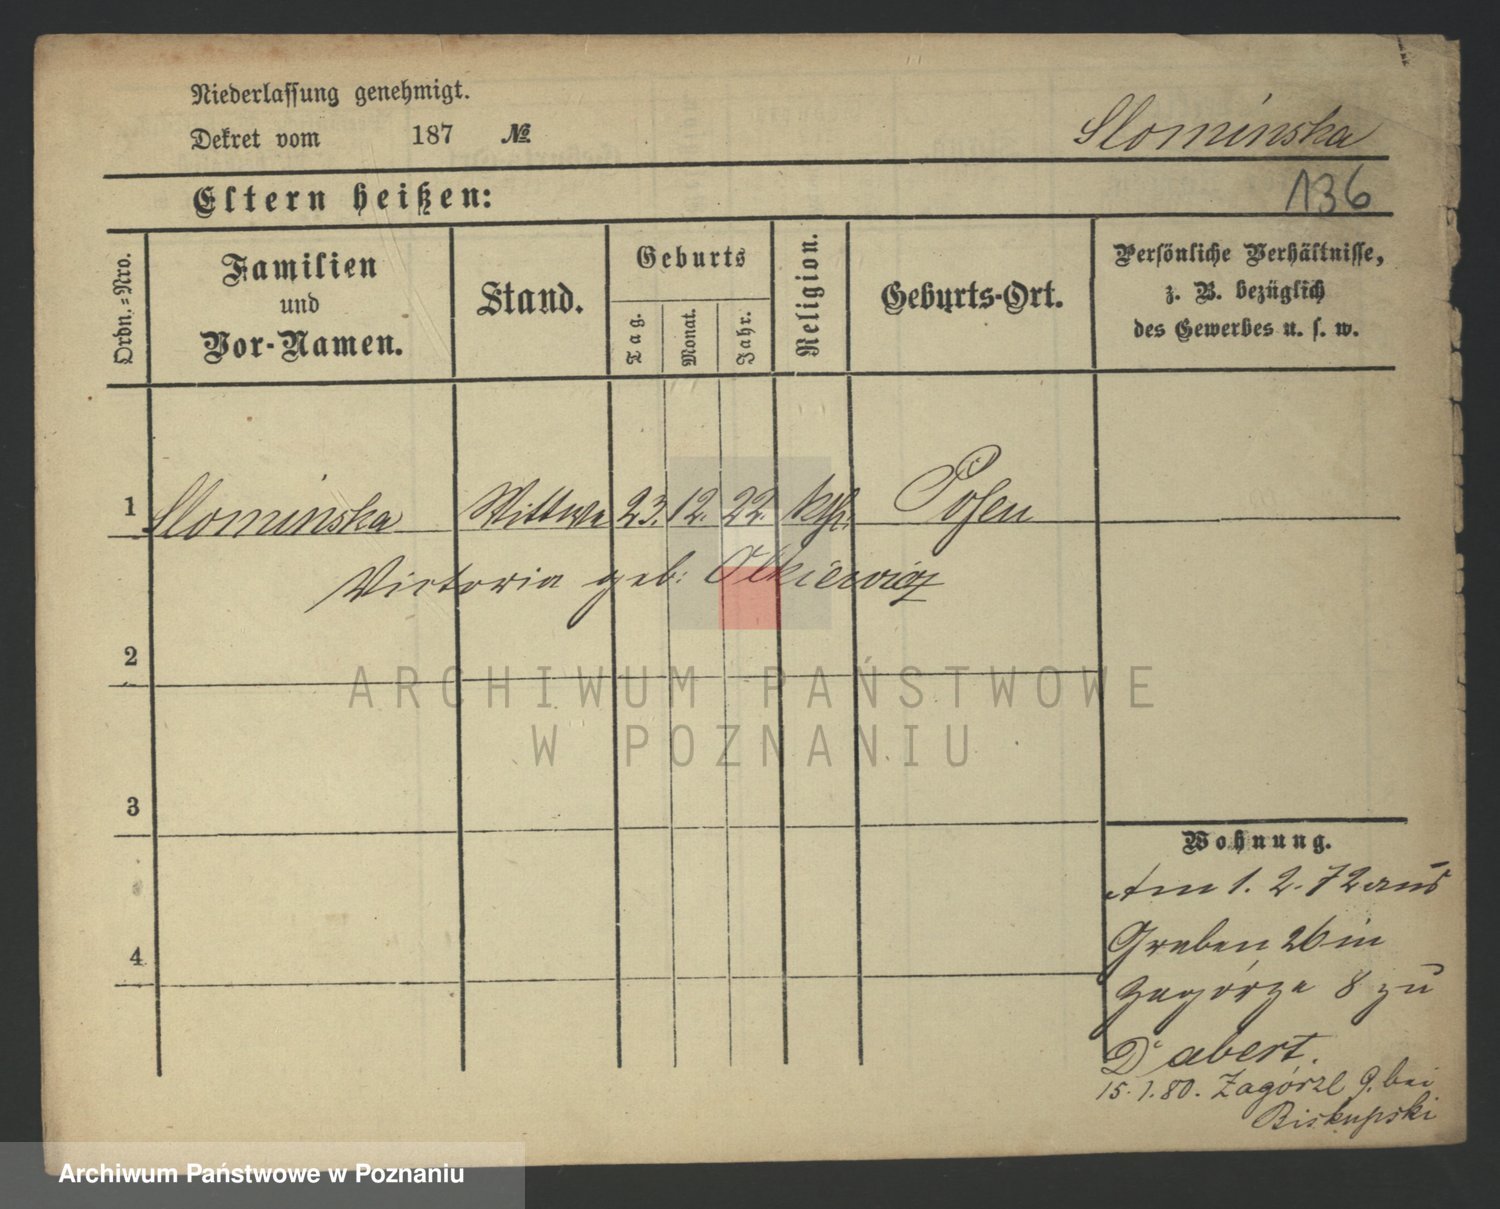 Niederlassung genehmigt.
Dekret vom 187 №
Slominska
Eltern heißen:
136
Ordn.-Nro.
Familien
und
Vor-Namen.
Stand.
Geburts
Tag.
Monat.
Jahr.
Religion.
Geburts-Ort.
Persönliche Verhältnisse,
z. B. bezüglich
des Gewerbes u. s. w.
1 Slominska Wittwe 23. 12. 22. kth. Posen
Victoria geb: Olkiewicz
2
ARCHIWUM PAŃSTWOWE
W POZNANIU
3
Wohnung.
Am 1. 2. 72 aus
Graben 26 in
Zagórze 8 zu
Dabert.
4
15. 1. 80. Zagórze 9. bei
Biskupski
Archiwum Państwowe w Poznaniu